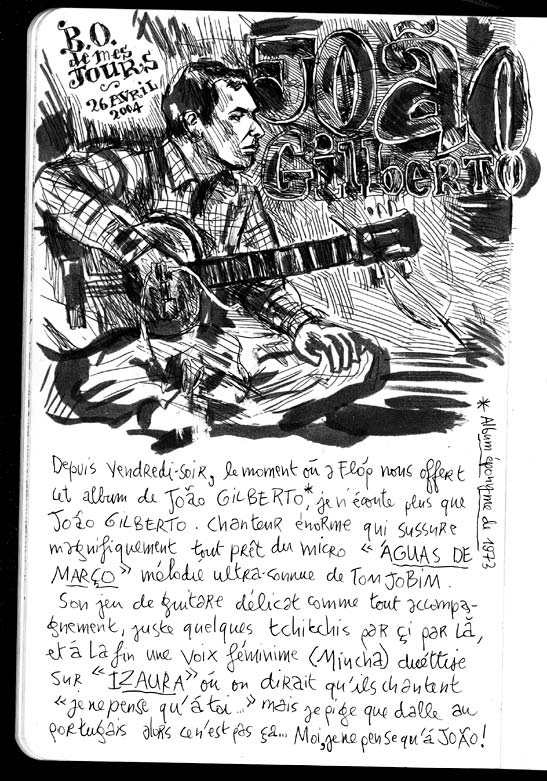 B.O.
de mes
JOURS
26 AVRIL
2004
JOÃO
GILBERTO
Depuis vendredi-soir, le moment où a Flóp nous offert
cet album de JOÃO GILBERTO*, je n'écoute plus que
JOÃO GILBERTO. Chanteur énorme qui sussure
magnifiquement tout prêt du micro « ÁGUAS DE
MARÇO » mélodie ultra-connue de TOM JOBIM.
Son jeu de guitare délicat comme tout accompa-
gnement, juste quelques tchitchis par çi par là,
et à la fin une voix féminime (Miucha) duettise
sur "IZAURA" où on dirait qu'ils chantent
« je ne pense qu'à toi... » mais je pige que dalle au
portugais alors ce n'est pas ça... Moi, je ne pense qu'à JOÃO!
* Album éponyme de 1973